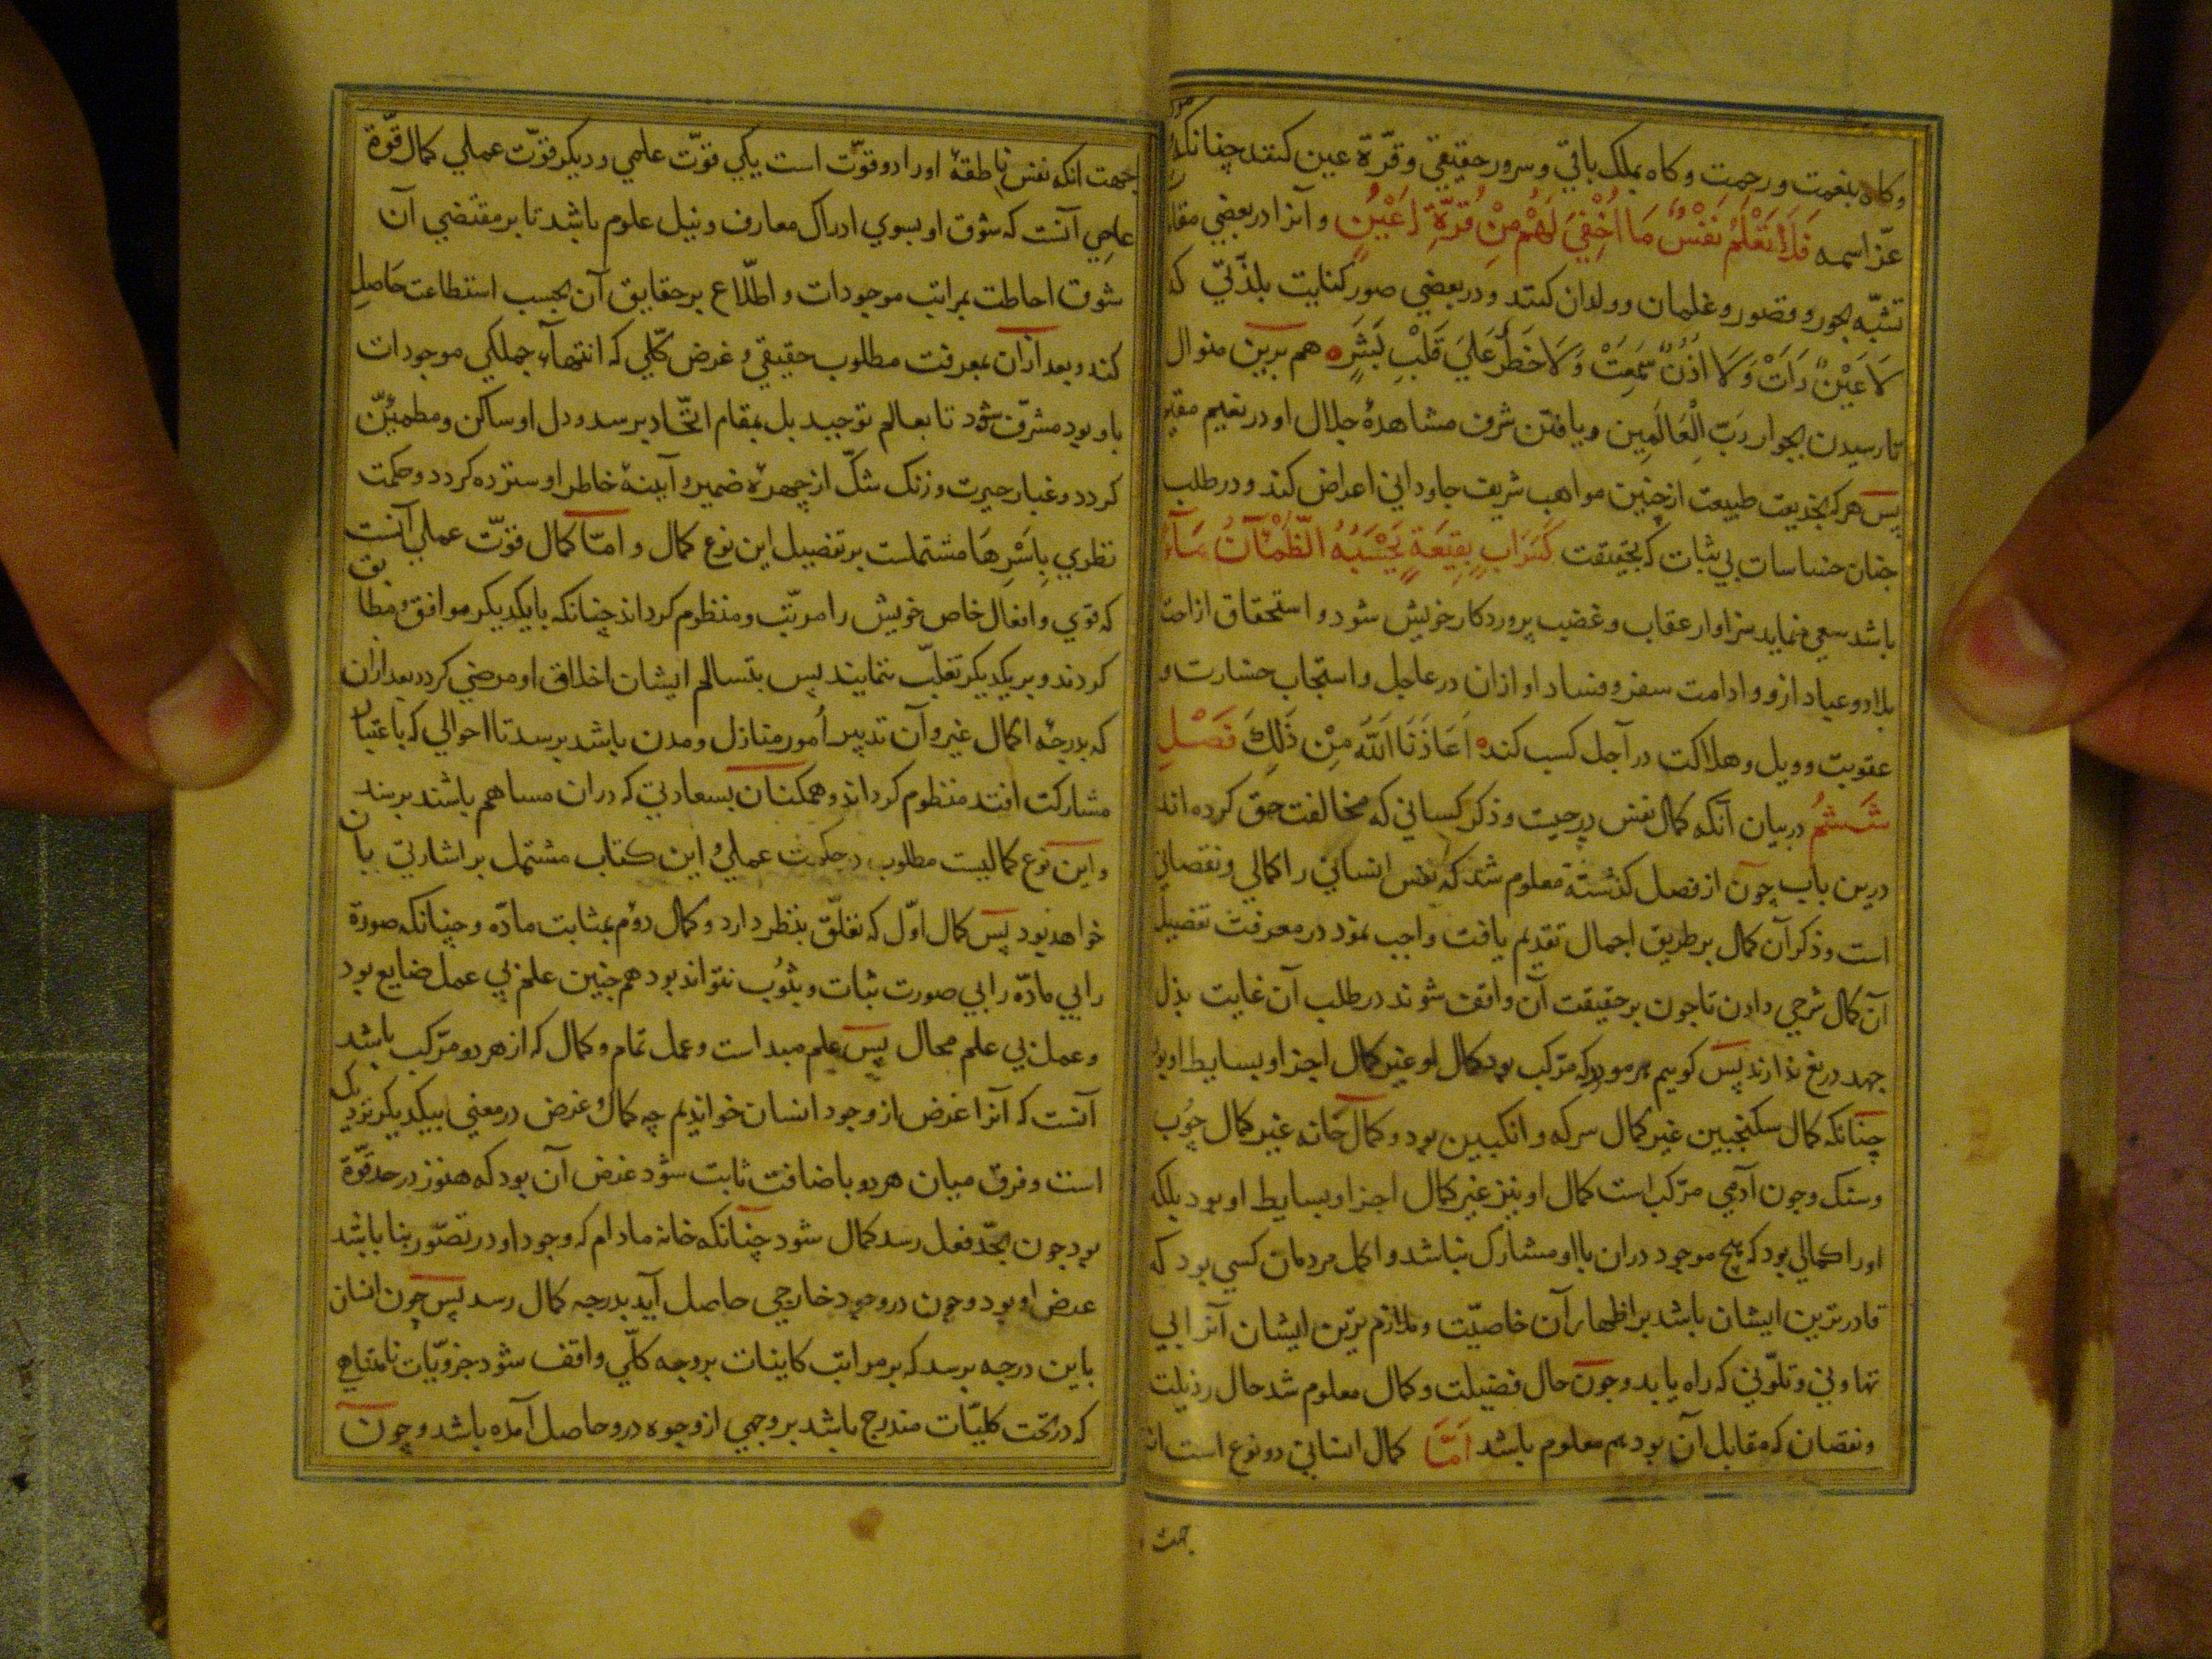 وكاه بنعمت ورحمت وكاه بملك باقي وسرور حقيقي وقرّة عين كنند چنانكه
عزّ اسمه فَلَا تَعْلَمُ نَفْسٌ مَا اُخْفِيَ لَهُمْ مِنْ قُرَّةِ اَعْيُنٍ و آنرا در بعضي
تشبّه بحور وقصور وغلمان و ولدان كنند و در بعضي صور كنايت بلذّتي كه
لَا عَيْنٌ رَاَتْ وَلَا اُذُنٌ سَمِعَتْ وَلَا خَطَرَ عَليَ قَلْبِ بَشَرٍ هم برين منوال
تا رسيدن بجوار رَبّ الْعَالَمِين و يافتن شرف مشاهدهٔ جلال او در نعيم مقيم
پس هركه بخديعت طبيعت از چنين مواهب شريف جاوداني اعراض كند و در طلب
چنان خساسات بي ثبات كه بحقيقت كَسَرَابٍ بِقِيعَةٍ يَحْسَبُهُ الظَّمْآنُ مَآءً
باشد سعي نمايد سزاوار عقاب وغضب پروردكار خويش شود و استحقاق
بلاد وعباد ازو و ادامت سفر و فساد او ازان در عاجل و استجاب خسارت و
عقوبت وويل وهلاكت در آجل كسب كند اَعَاذَنَا اللّٰه مِنْ ذَلِكَ فَصْلِ
شَشُمْ در بيان آنكه كمال نفس در چيست و ذكر كساني كه مخالفت حق كرده اند
درين باب چون از فصل كذشته معلوم شد كه نفس انساني را كمالي و نقصاني
است و ذكر آن كمال بر طريق اجمال تقديم يافت واجب نمود در معرفت تفصيل
آن كمال شرحي دادن تا چون بر حقيقت آن واقف شوند در طلب آن غايت بذل
جهد دريغ ندارند پس كوييم هر موجود كه مركّب بود كمال او غير كمال اجزا و بسايط او بود
چنانكه كمال سكنجبين غير كمال سركه و انكبين بود و كمال خانه غير كمال چوب
وسنك و چون آدمي مركّب است كمال او نيز غير كمال اجزا و بسايط او بود بلكه
او را كمالي بود كه هيچ موجود دران با او مشارك نباشد و اكمل مردمان كسي بود كه
قادرترين ايشان باشد بر اظهار آن خاصيّت و ملازم ترين ايشان آنرا بي
تهاوني و تلوّني كه راه يابد و چون حال فضيلت و كمال معلوم شد حال رذيلت
و نقصان كه مقابل آن بود هم معلوم باشد اَمَّا كمال انساني دو نوع است از
جهت
جهت آنكه نفس ناطقهٔ او را دو قوّت است يكي قوّت علمي و ديكر قوّت عملي كمال قوّة
علمي آنست كه شوق او بسوي ادراك معارف و نيل علوم باشد تا بر مقتضي آن
شوق احاطت بمراتب موجودات و اطلّاع بر حقايق آن بحسب استطاعت حاصل
كند و بعد ازان بمعرفت مطلوب حقيقي و غرض كلّي كه انتهآء جملكي موجودات
باو بود مشرّف شود تا بعالم توحيد بل بمقام اتّحاد برسد و دل او ساكن و مطمئنّ
كردد وغبار حيرت و زنك شكّ از چهرهٔ ضمير و آينهٔ خاطر او سترده كردد و حكمت
نظري بِاَسْرِهَا مشتملست بر تفصيل اين نوع كمال و امّا كمال قوّت عملي آنست
كه قوي و افعال خاص خويش را مرتّب و منظوم كرداند چنانكه با يكديكر موافق و مطابق
كردند و بر يكديكر تغلّب ننمايند پس بتسالم ايشان اخلاق او مرضي كردد بعد ازان
كه بدرجهٔ اكمال غير و آن تدبير اُمور منازل و مدن باشد برسد تا احوالي كه باعتبار
مشاركت افتد منظوم كرداند و همكنان بسعادتي كه دران مساهم باشند برسند
و اين نوع كماليست مطلوب در حكمت عملي و اين كتاب مشتمل بر اشارتي بآن
خواهد بود پس كمال اوّل كه تعلّق بنظر دارد و كمال دوم بمثابت مادّه و چنانكه صورة
را بي مادّه را بي صورت ثبات و ثبوت نتواند بود همچنين علم بي عمل ضايع بود
و عمل بي علم محال پس علم مبدا است و عمل تمام و كمال كه از هر دو مركّب باشد
آنست كه آنرا غرض از وجود انسان خوانديم چه كمال و غرض در معني بيكديكر نزديك
است و فرق ميان هر دو باضافت ثابت شود غرض آن بود كه هنوز در حد قوّة
بود چون بحدّ فعل رسد كمال شود چنانكه خانه مادام كه وجود او در تصوّر بنا باشد
غرض او بود و چون در وجود خارجي حاصل آيد بدرجه كمال رسد پس چون انسان
باين درجه برسد كه بر مراتب كاينات بر وجه كلّي واقف شود جزويّات نامتناهي
كه در تحت كليّات مندرج باشد بر وجهي از وجوه درو حاصل آمده باشد و چون